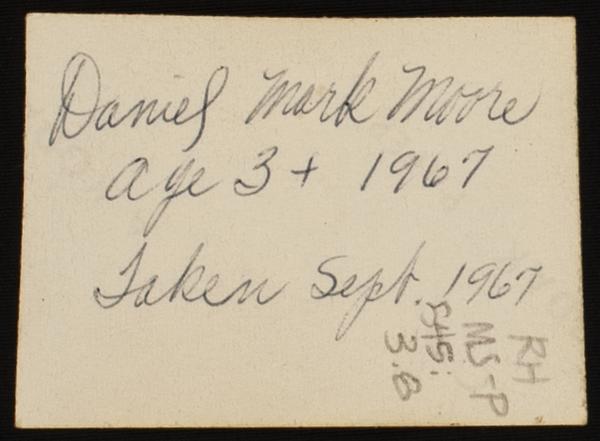 Daniel Mark Moore
age 3+ 1967
Taken Sept. 1967
RH
MS-P
S45:
3.8